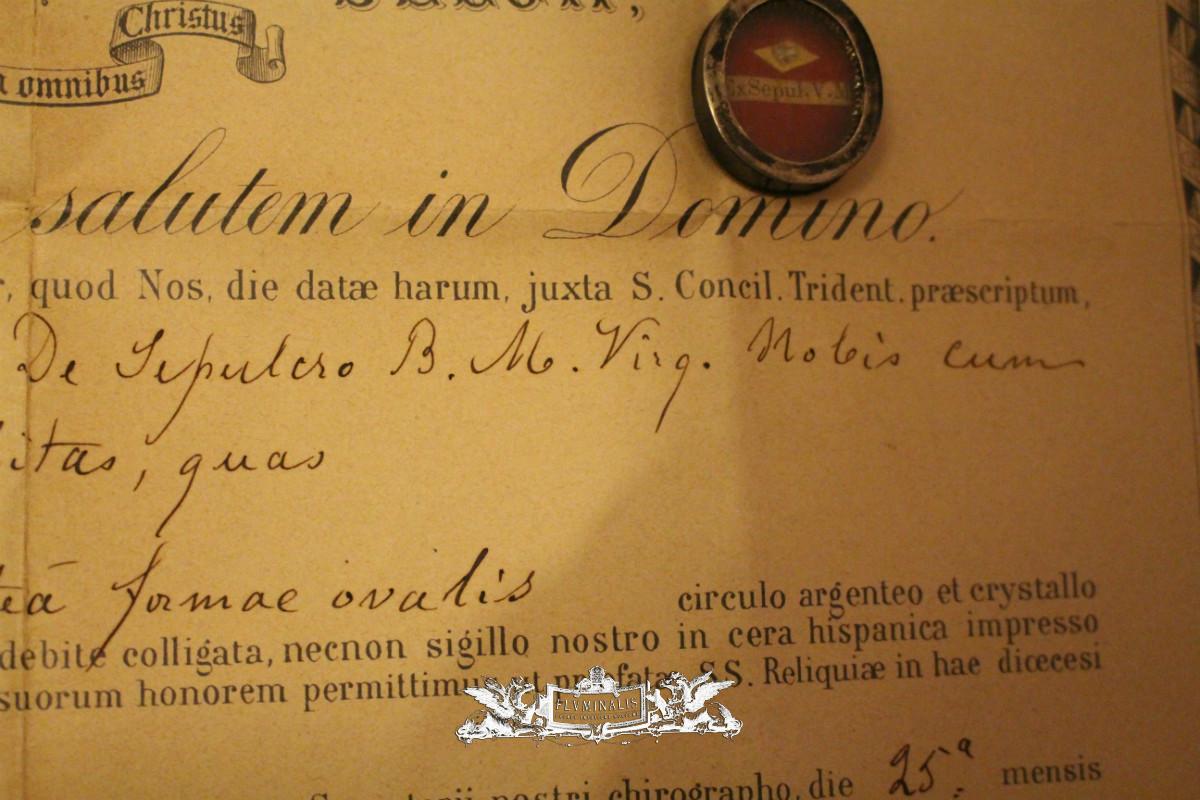 Christus
omnibus
ExSepul.V.M
salutem in Domino.
quod Nos, die datæ harum, juxta S. Concil. Trident. præscriptum,
De Sepulcro B. M. Virg. Nobis cum
itas, quas
formae ovalis circulo argenteo et crystallo
debite colligata, necnon sigillo nostro in cera hispanica impresso
suorum honorem permittimus ut præfatæ SS. Reliquiæ in hac diœcesi
FLVMINALIS
nostri chirographo, die 25.a mensis